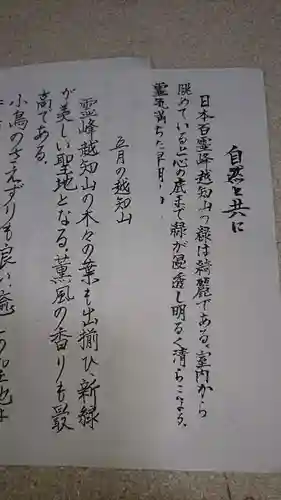 自然と共に
日本百霊峰越知山の緑は綺麗である。室内から
眺めていると心の底まで緑が浸透し明るく清らになる。
霊気満ちた早月
五月の越知山
霊峰越知山の木々の葉も出揃ひ新緑
が美しい聖地となる。薫風の香りも最
高である。
小鳥のさえずりも良い